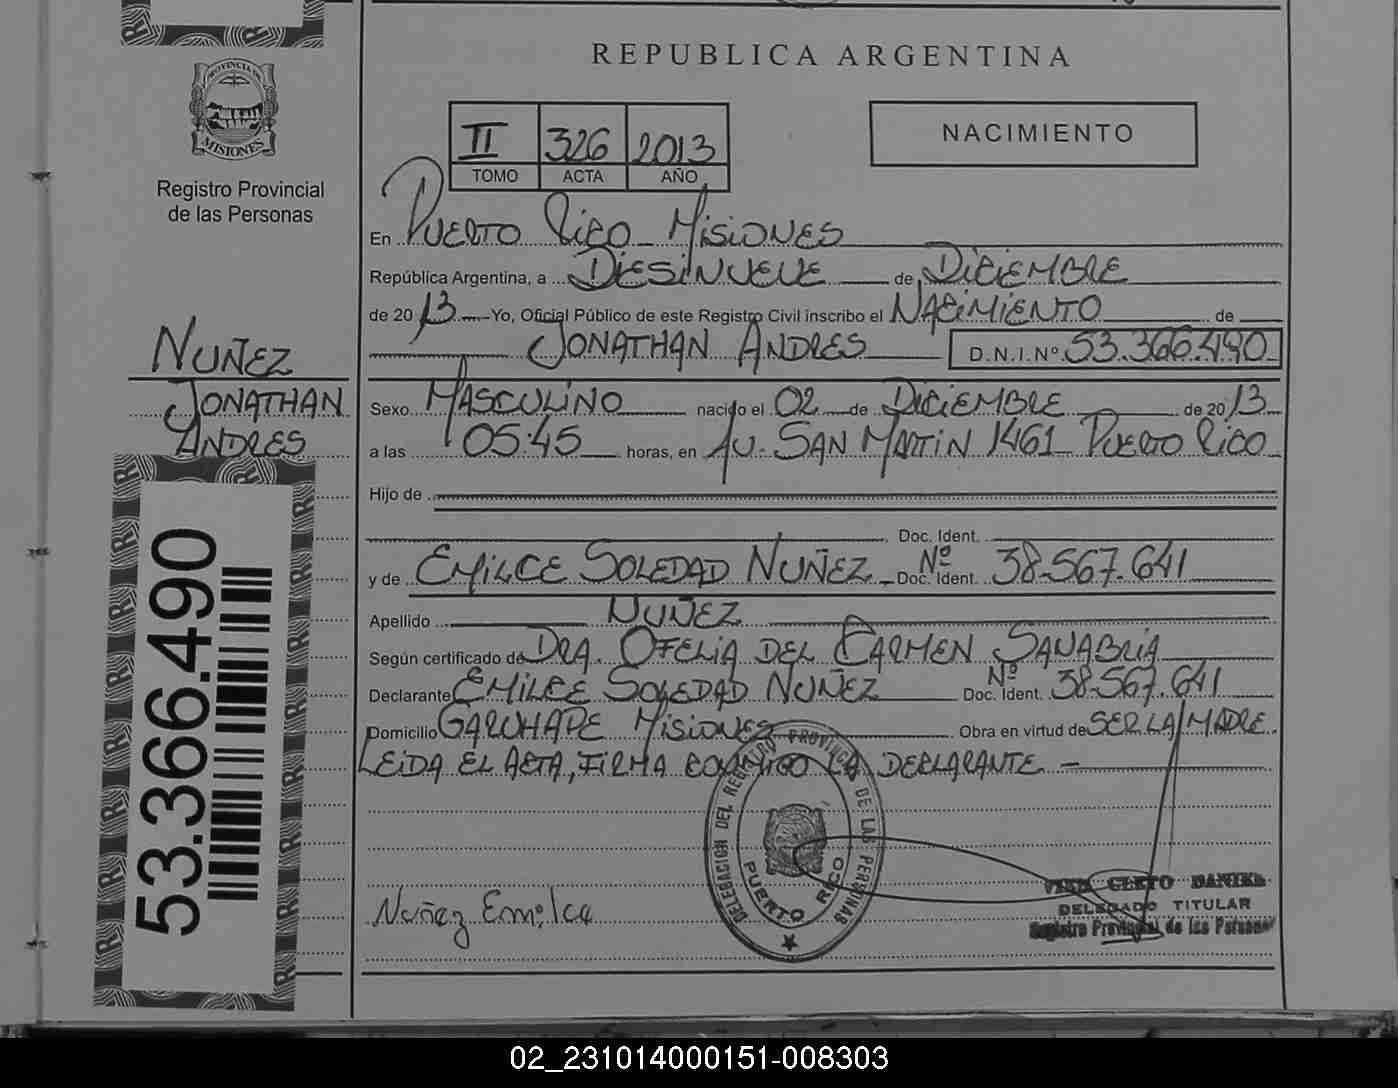 REPUBLICA ARGENTINA
PROVINCIA DE
MISIONES
Registro Provincial
de las Personas
II 326 2013
TOMO ACTA AÑO
NACIMIENTO
En PUERTO RICO MISIONES
República Argentina, a DIESINUEVE de DICIEMBRE
de 20 13 Yo, Oficial Público de este Registro Civil inscribo el NACIMIENTO de
JONATHAN ANDRES D.N.I.Nº 53.366.490
NUÑEZ
JONATHAN
ANDRES
Sexo MASCULINO nacido el 02 de DICIEMBRE de 20 13
a las 05:45 horas, en AV. SAN MARTIN 1461 PUERTO RICO
Hijo de
Doc. Ident.
y de EMILCE SOLEDAD NUÑEZ Doc. Ident. Nº 38.567.641
Apellido NUÑEZ
Según certificado de DRA. OFELIA DEL CARMEN SANABRIA
Declarante EMILCE SOLEDAD NUÑEZ Doc. Ident. Nº 38.567.641
Domicilio GARUHAPE MISIONES Obra en virtud de SER LA MADRE
LEIDA EL ACTA, FIRMA CONMIGO LA DECLARANTE -
53.366.490
DELEGACION DEL REGISTRO PROVINCIAL DE LAS PERSONAS
PUERTO RICO
Nuñez Emilce
DELEGADO TITULAR
Registro Provincial de las Personas
02_231014000151-008303